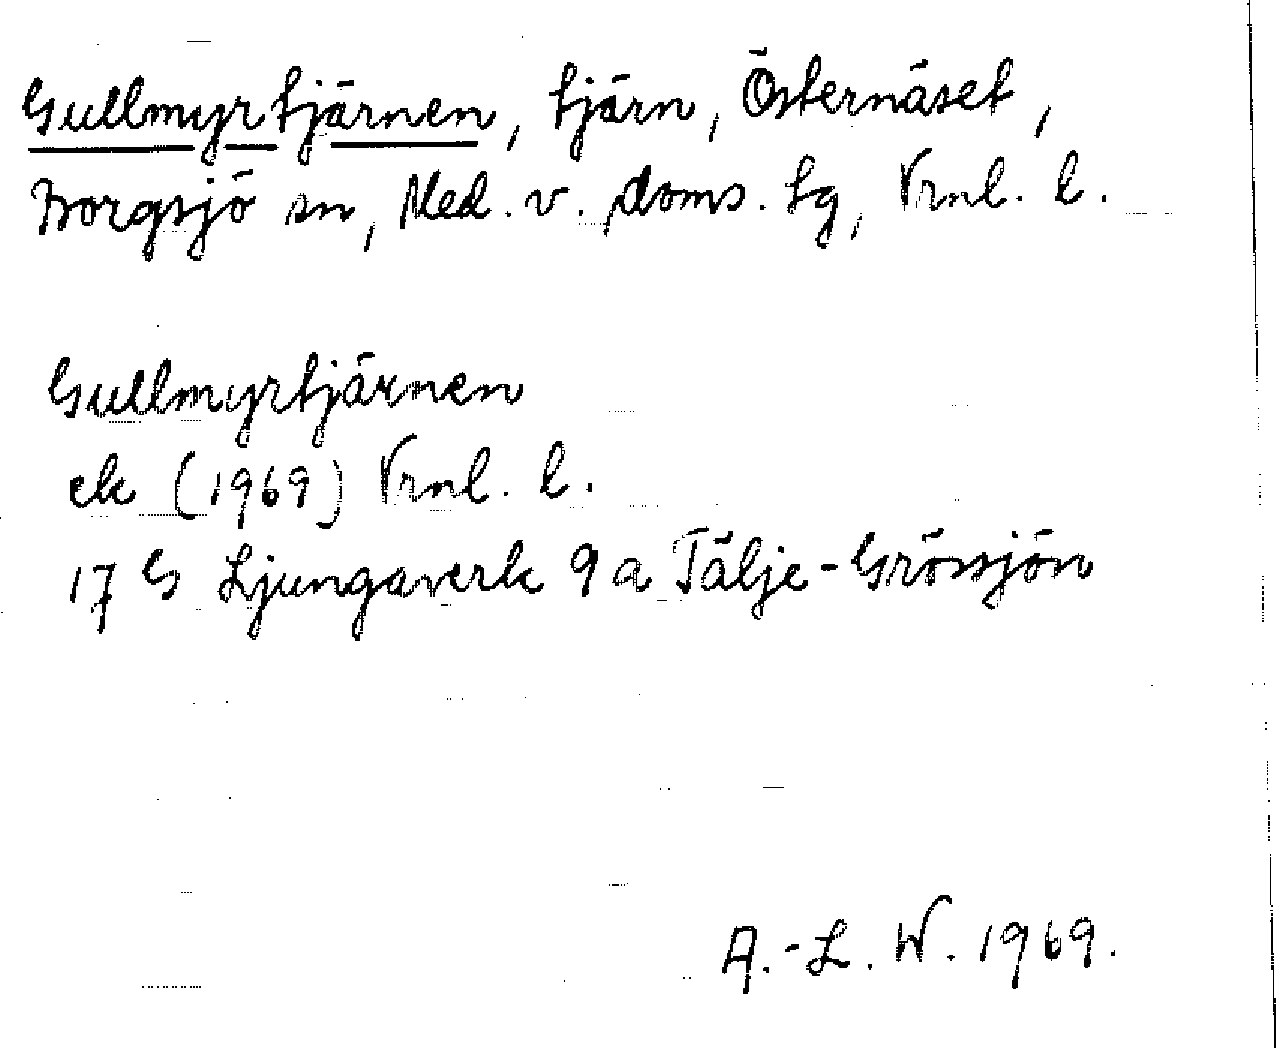 Gullmyrtjärnen, tjärn, Östernäset,
Borgsjö sn, Med. v. doms. tg, Vrnl. l.
Gullmyrtjärnen
ek (1969) Vrnl. l.
17 G Ljungaverk 9 a Tälje-Grössjön
A.-L. W. 1969.